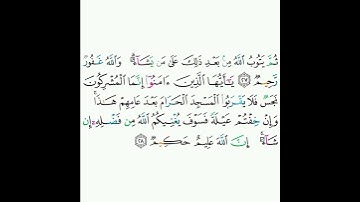 ثُمَّ يَتُوبُ ٱللَّهُ مِنۢ بَعْدِ ذَٰلِكَ عَلَىٰ مَن يَشَآءُ ۗ وَٱللَّهُ غَفُورٌ
رَّحِيمٌ ٢٧ يَٰٓأَيُّهَا ٱلَّذِينَ ءَامَنُوٓا۟ إِنَّمَا ٱلْمُشْرِكُونَ
نَجَسٌ فَلَا يَقْرَبُوا۟ ٱلْمَسْجِدَ ٱلْحَرَامَ بَعْدَ عَامِهِمْ هَٰذَا ۚ
وَإِنْ خِفْتُمْ عَيْلَةً فَسَوْفَ يُغْنِيكُمُ ٱللَّهُ مِن فَضْلِهِۦٓ إِن
شَآءَ ۚ إِنَّ ٱللَّهَ عَلِيمٌ حَكِيمٌ ٢٨